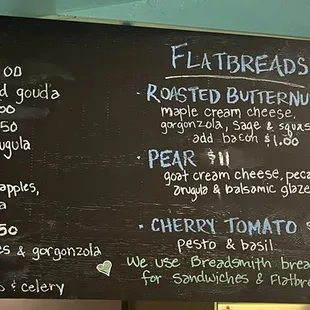 00
d gouda
00
50
rugula
apples,
a
50
es & gorgonzola
s & celery
FLATBREADS
· ROASTED BUTTERNU
maple cream cheese,
gorgonzola, sage & squas
add bacon $1.00
· PEAR $11
goat cream cheese, peca
arugula & balsamic glaze
· CHERRY TOMATO $
pesto & basil
We use Breadsmith brea
for Sandwiches & Flatbre